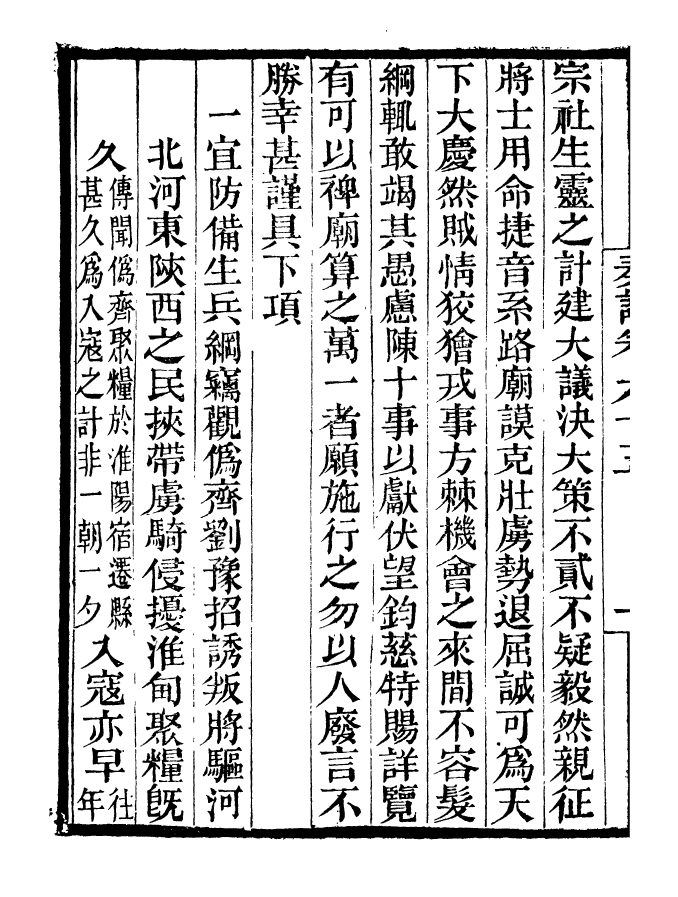 宗社生靈之計建大議決大策不貳不疑毅然親征
將士用命捷音系路廟謨克壯虜勢退屈誠可爲天
下大慶然賊情狡獪戎事方棘機會之來間不容髮
綱輒敢竭其愚慮陳十事以獻伏望鈞慈特賜詳覽
有可以裨廟算之萬一者願施行之勿以人廢言不
勝幸甚謹具下項
一宜防備生兵綱竊觀僞齊劉豫招誘叛將驅河
北河東陝西之民挾帶虜騎侵擾淮甸聚糧旣
久傳聞僞齊聚糧於淮陽宿遷縣甚久爲入寇之計非一朝一夕入寇亦早往年